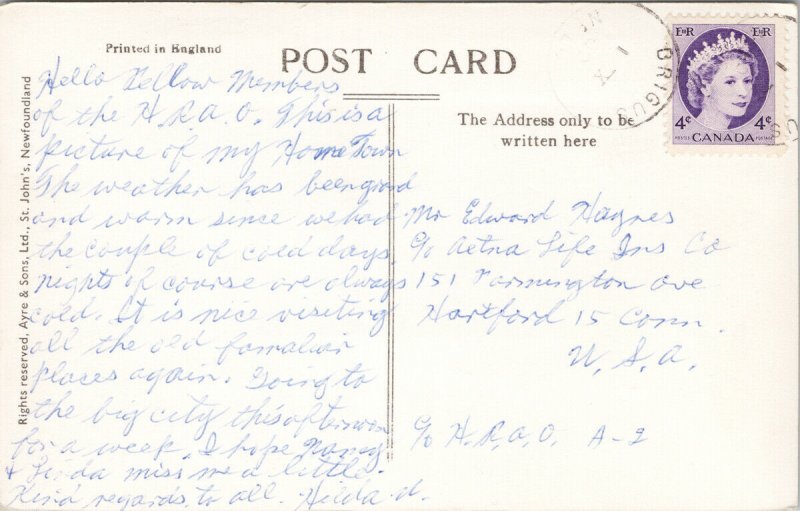 Printed in England
POST CARD
The Address only to be
written here
Rights reserved, Ayre & Sons, Ltd., St. John's, Newfoundland
Hello Fellow Members
of the H.R.A.O. This is a
picture of my Home Town
The weather has been good
and warm since we had
the couple of cold days,
nights of course are always
cold. It is nice visiting
all the old familiar
places again. Going to
the big city this afternoon
for a week. I hope Nancy
& Linda miss me a little.
Kind regards to all. Hilda d.
Mr Edward Haynes
c/o Aetna Life Ins Co
151 Farmington ave
Hartford 15 Conn.
U.S.A.
c/o H.R.A.O. A-2
BRIGUS
E II R E II R
4¢ CANADA 4¢
POSTES POSTAGE